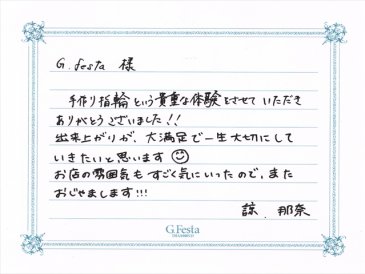 G.festa 様
手作り指輪という貴重な体験をさせていただき
ありがとうございました!!
出来上がりが、大満足で一生大切にして
いきたいと思います
お店の雰囲気もすごく気にいったので、また
おじゃまします!!!
諒 . 那奈
G.Festa